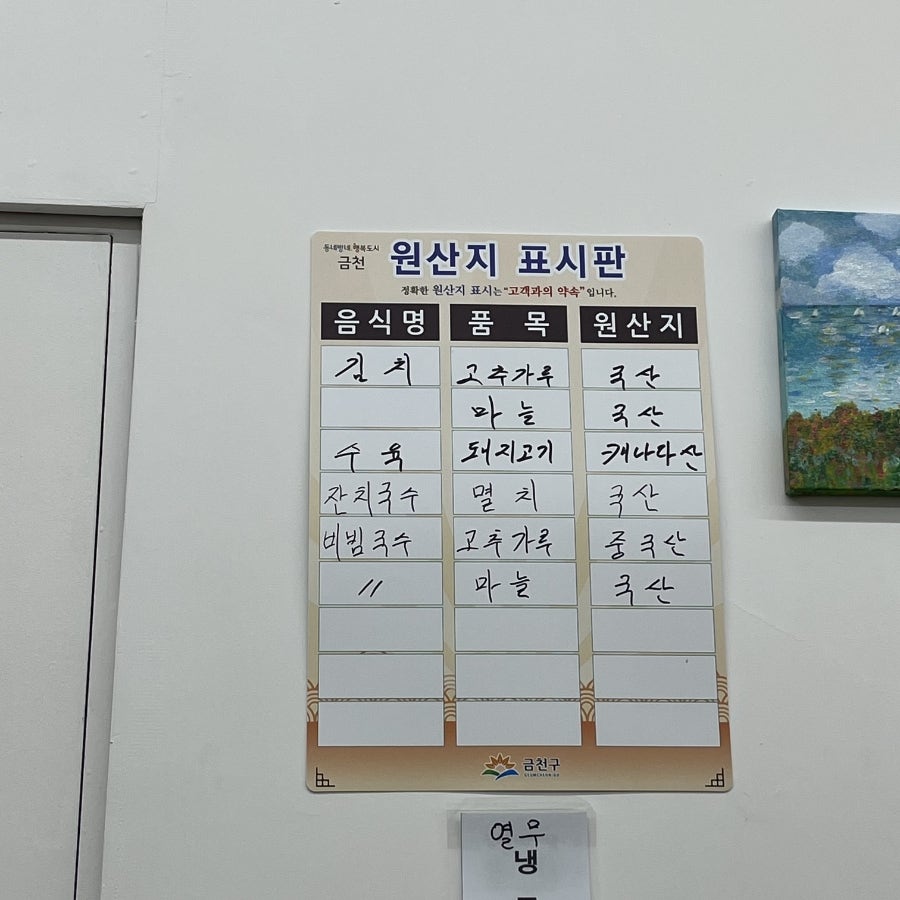 동네방네 행복도시
금천 원산지 표시판
정확한 원산지 표시는 "고객과의 약속" 입니다.
음식명 품목 원산지
김치 고추가루 국산
마늘 국산
수육 돼지고기 캐나다산
잔치국수 멸치 국산
비빔국수 고추가루 중국산
〃 마늘 국산
금천구
GEUMCHEON-GU
열무
냉